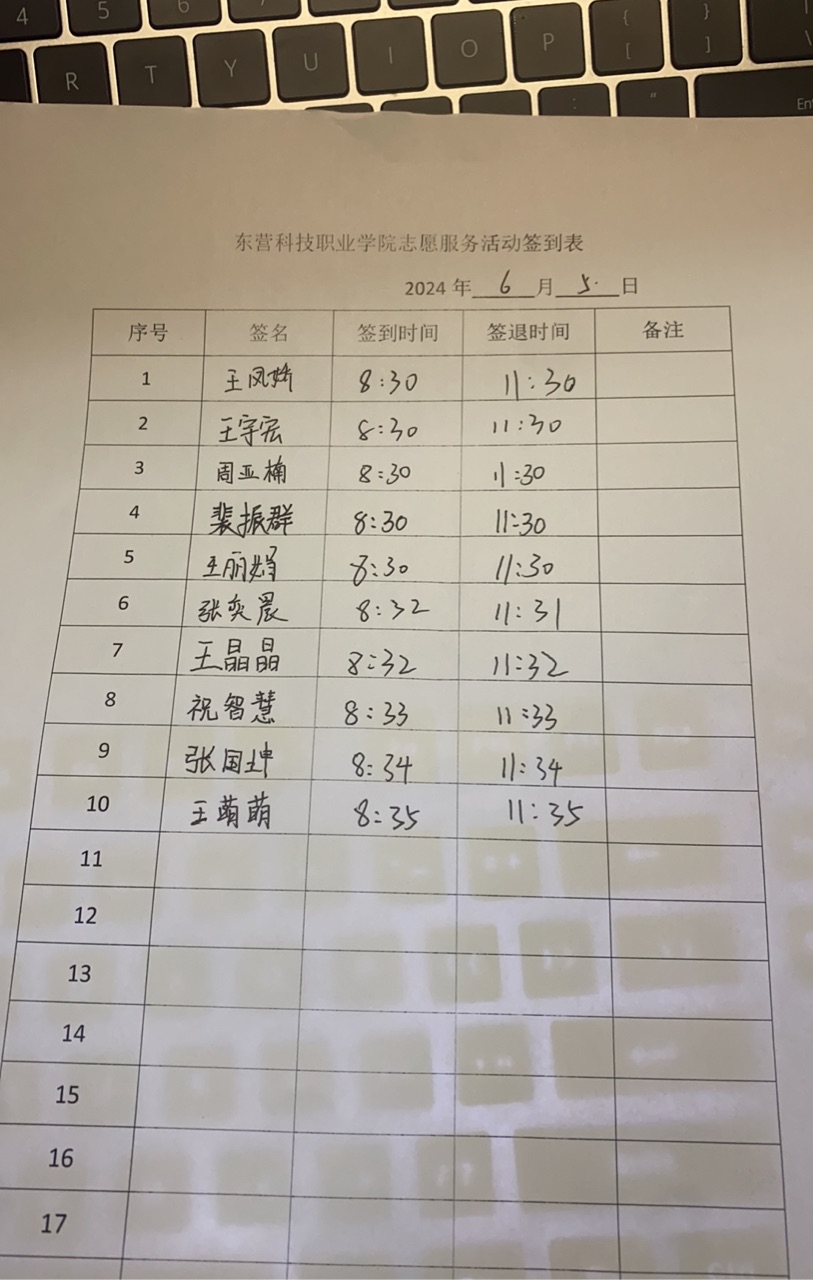 4 5 6
R T Y U I O P { [ } ]
: " Ent
东营科技职业学院志愿服务活动签到表
2024 年 6 月 5 日
序号 签名 签到时间 签退时间 备注
1 王凤娇 8:30 11:30
2 王宇宏 8:30 11:30
3 周亚楠 8:30 11:30
4 裴振群 8:30 11:30
5 8:30 11:30
6 张奕晨 8:32 11:31
7 王晶晶 8:32 11:32
8 祝智慧 8:33 11:33
9 张国坤 8:34 11:34
10 王萌萌 8:35 11:35
11
12
13
14
15
16
17